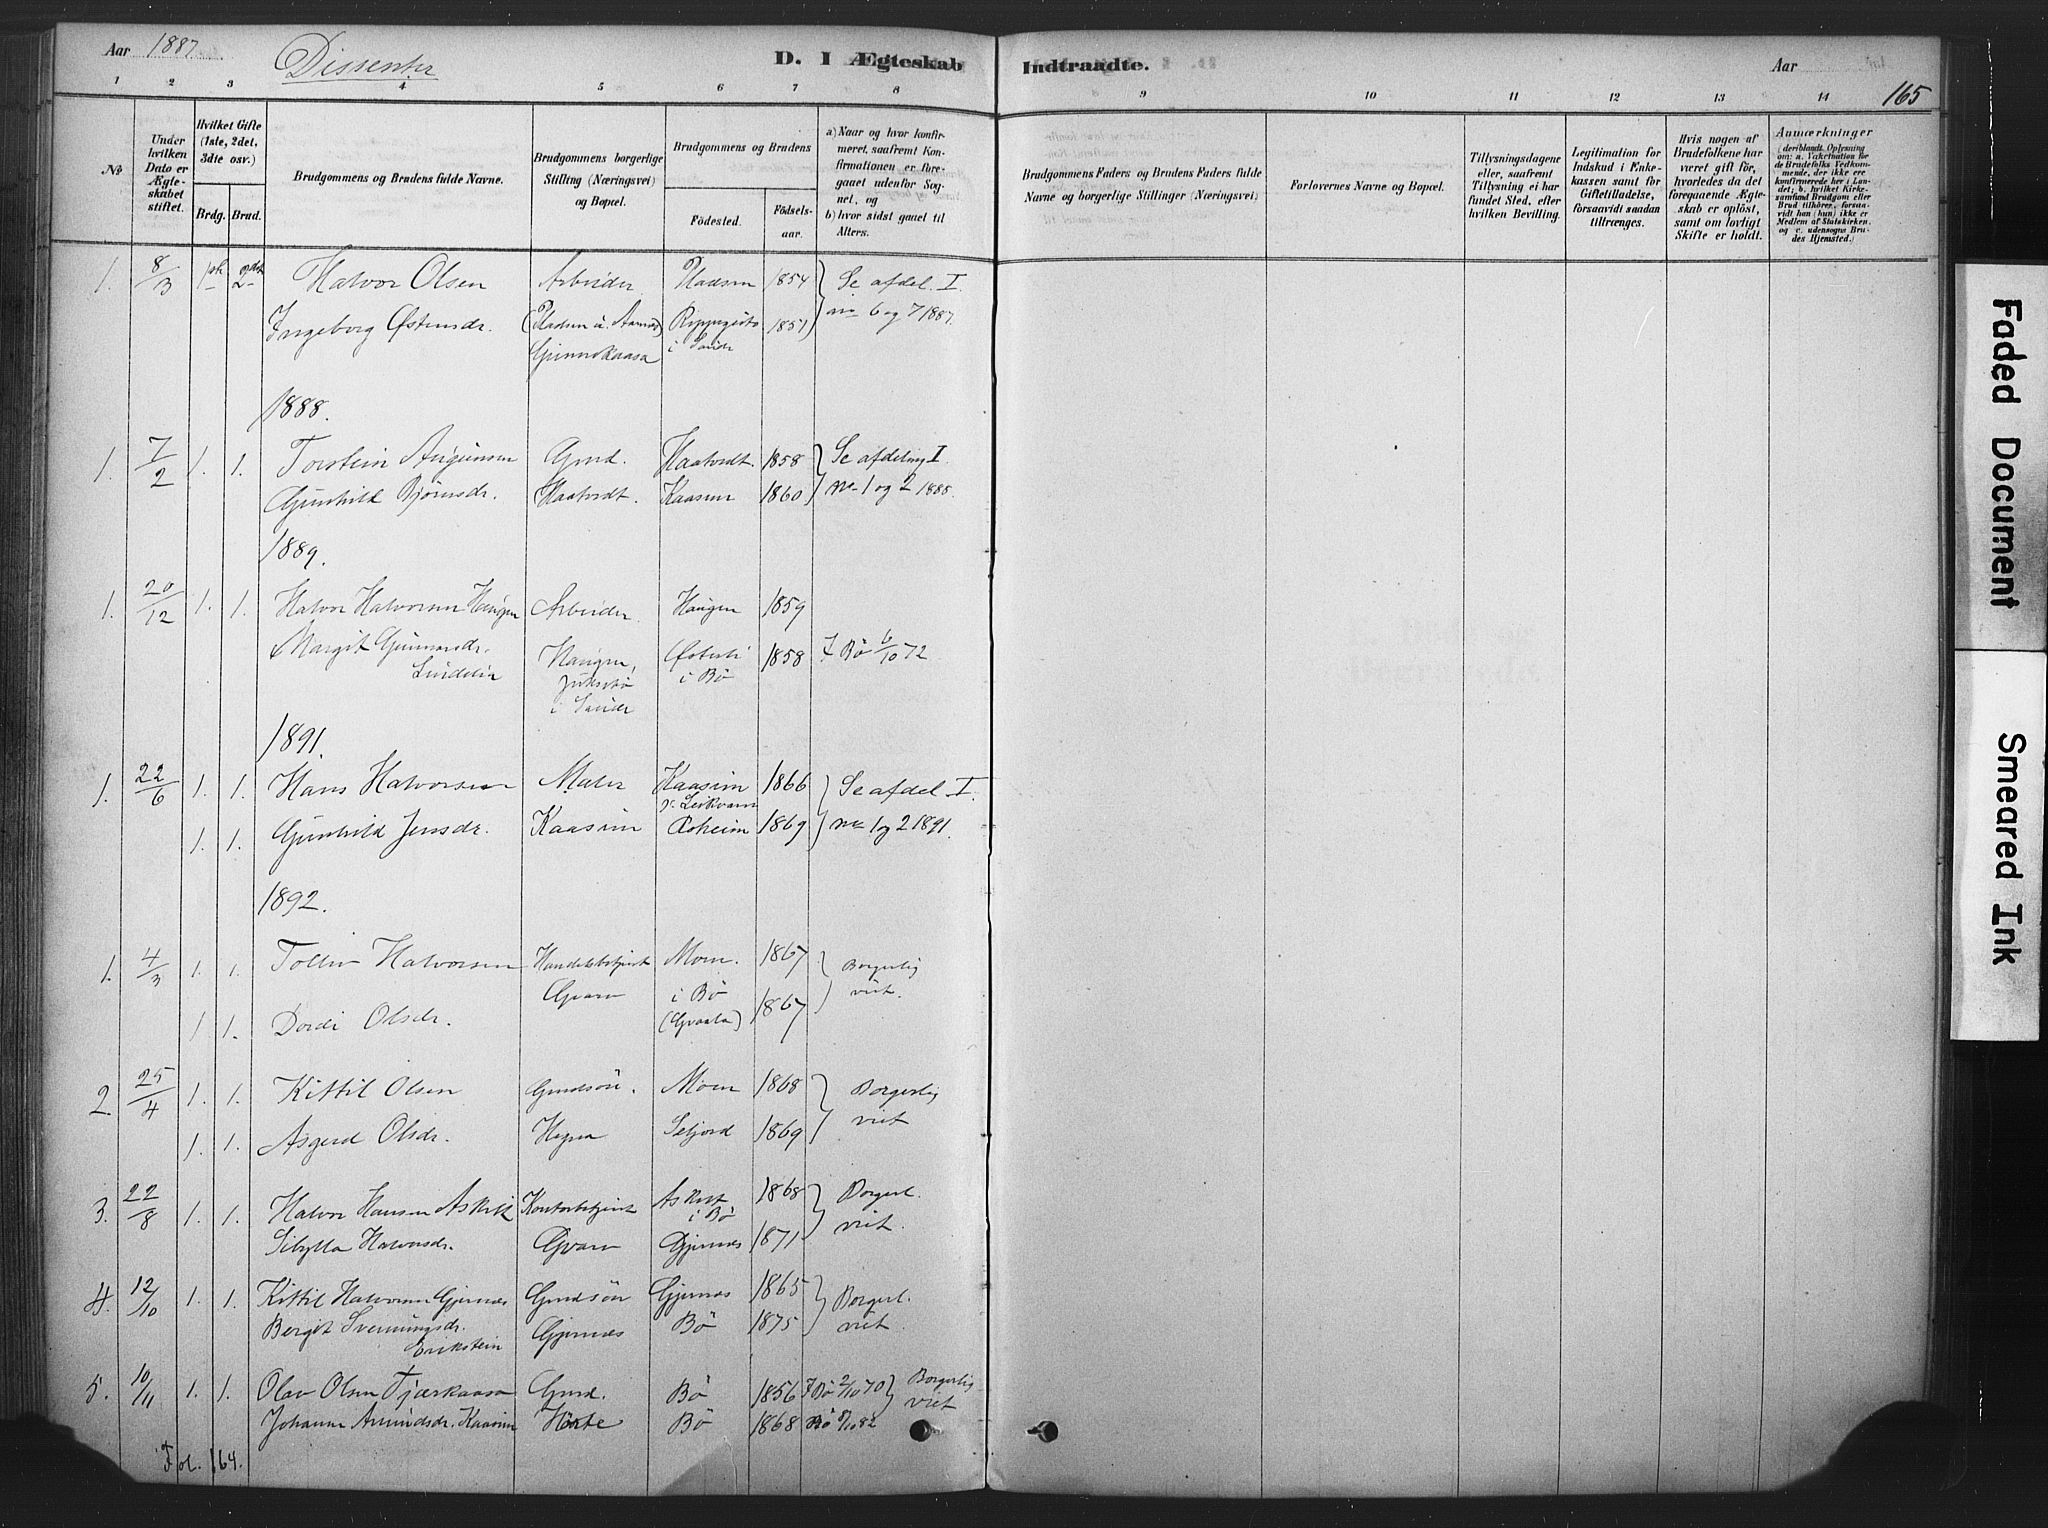 Aar 1887. Dissenter D. I Ægteskab Indtraadte. Aar
165
1 2 3 4 5 6 7 8 9 10 11 12 13 14
№
Under hvilken Dato er Ægteskabet stiftet.
Hvilket Gifte (1ste, 2det, 3die osv.)
Brdg. Brud.
Brudgommens og Brudens fulde Navne.
Brudgommens borgerlige Stilling (Næringsvei) og Bopæl.
Brudgommens og Brudens
Födested. Födselsaar.
a) Naar og hvor konfirmeret, saafremt Konfirmationen er foregaaet udenfor Sognet, og
b) hvor sidst gaaet til Alters.
Brudgommens Faders og Brudens Faders fulde Navne og borgerlige Stillinger (Næringsvei)
Forlovernes Navne og Bopæl.
Tillysningsdagene eller, saafremt Tillysning ei har fundet Sted, efter hvilken Bevilling.
Legitimation for Indskud i Enkekassen samt for Giftetilladelse, forsaavidt saadan tiltrænges.
Hvis nogen af Brudefolkene har været gift för, hvorledes da det foregaaende Ægteskab er oplöst, samt om lovligt Skifte er holdt.
Anmærkninger
(deriblandt Oplysning om: a. Vaktination for de Brudefolks Vedkommende, der ikke ere konfirmerede her i Landet; b. hvilket Kirkesamfund Brudgom eller Brud tilhörer, forsaavidt han (hun) ikke er Medlem af Statskirken, og c. udensogns Brudes Hjemsted.)
1. 8/3 1ste 2det Halvor Olsen Arbeider Pladsen 1854 Se afdel. I.
Ingeborg Østensdr. (Pladsen u. 1851 6 og 7 1887.
i Saude
1888.
1. 7/2 1. 1. Torstein Gmd. Haatvedt. 1858 Se afdeling I
Gunhild Bjørnsdr. Haatvedt. Kaasen 1860 no 1 og 2 1888.
1889.
1. 20/12 1. 1. Halvor Halvorsen Haugen Arbeider Haugen 1859
& Margit Gunnarsdr. Haugen, Østerli 1858 I Bø 6/10 72
i Bø
i Saude
1891.
1. 22/6 1. 1. Hans Halvorsen Maler Kaasim 1866 Se afdel I.
1. 1. Gunhild Jensdr. Kaasim 1869 no 1 og 2 1891.
1892.
1. 4/3 1. 1. Halvorsen Handelsbetjent Moen. 1867 Borgerlig
Gvarv i Bø viet.
1. 1. Dordi Olsdr. 1867
2 25/4 1. 1. Kittil Olsen Gmdsön. Moen 1868 Borgerlig
1. 1. Asgerd Olsdr. Seljord 1869 viet
3. 22/8 1. 1. Halvor Hansen Kontorbetjent 1868 Borgerl.
i Bø
Sibylla Halvorsdr. Gvarv Gjernes 1871 viet.
4. 12/10 1. 1. Kittil Halvorsen Gjernes Gmdsön Gjernes 1865 Borgerl.
Bergit Svenningsdr. Gjernes Bø 1875 viet.
Erikstein
5. 10/11 1. 1. Olav Olsen Gmd. Bø 1856 I Bø 2/10 70 Borgerlig
Johanne Amundsdr. Kaasim Hørte Bø 1868 Bø 82 viet
Fol. 164.
Faded Document
Smeared Ink